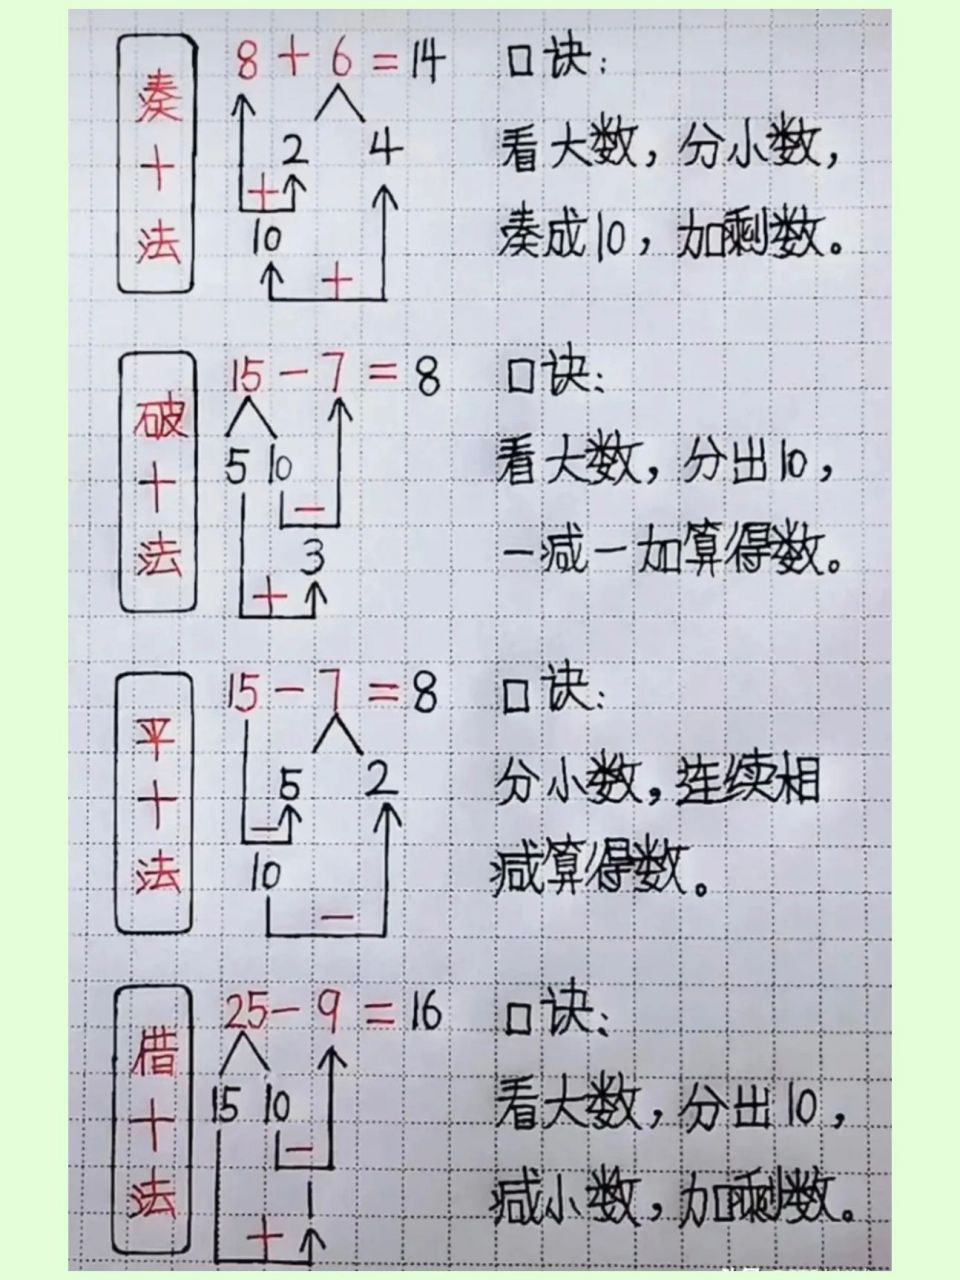 凑十法
8+6=14
2 4
+
10
+
口诀:
看大数,分小数,
凑成10,加剩数。
破十法
15-7=8
5 10
-
3
+
口诀:
看大数,分出10,
一减一加算得数。
平十法
15-7=8
5 2
-
10
-
口诀:
分小数,连续相
减算得数。
借十法
25-9=16
15 10
-
1
+
口诀:
看大数,分出10,
减小数,加剩数。